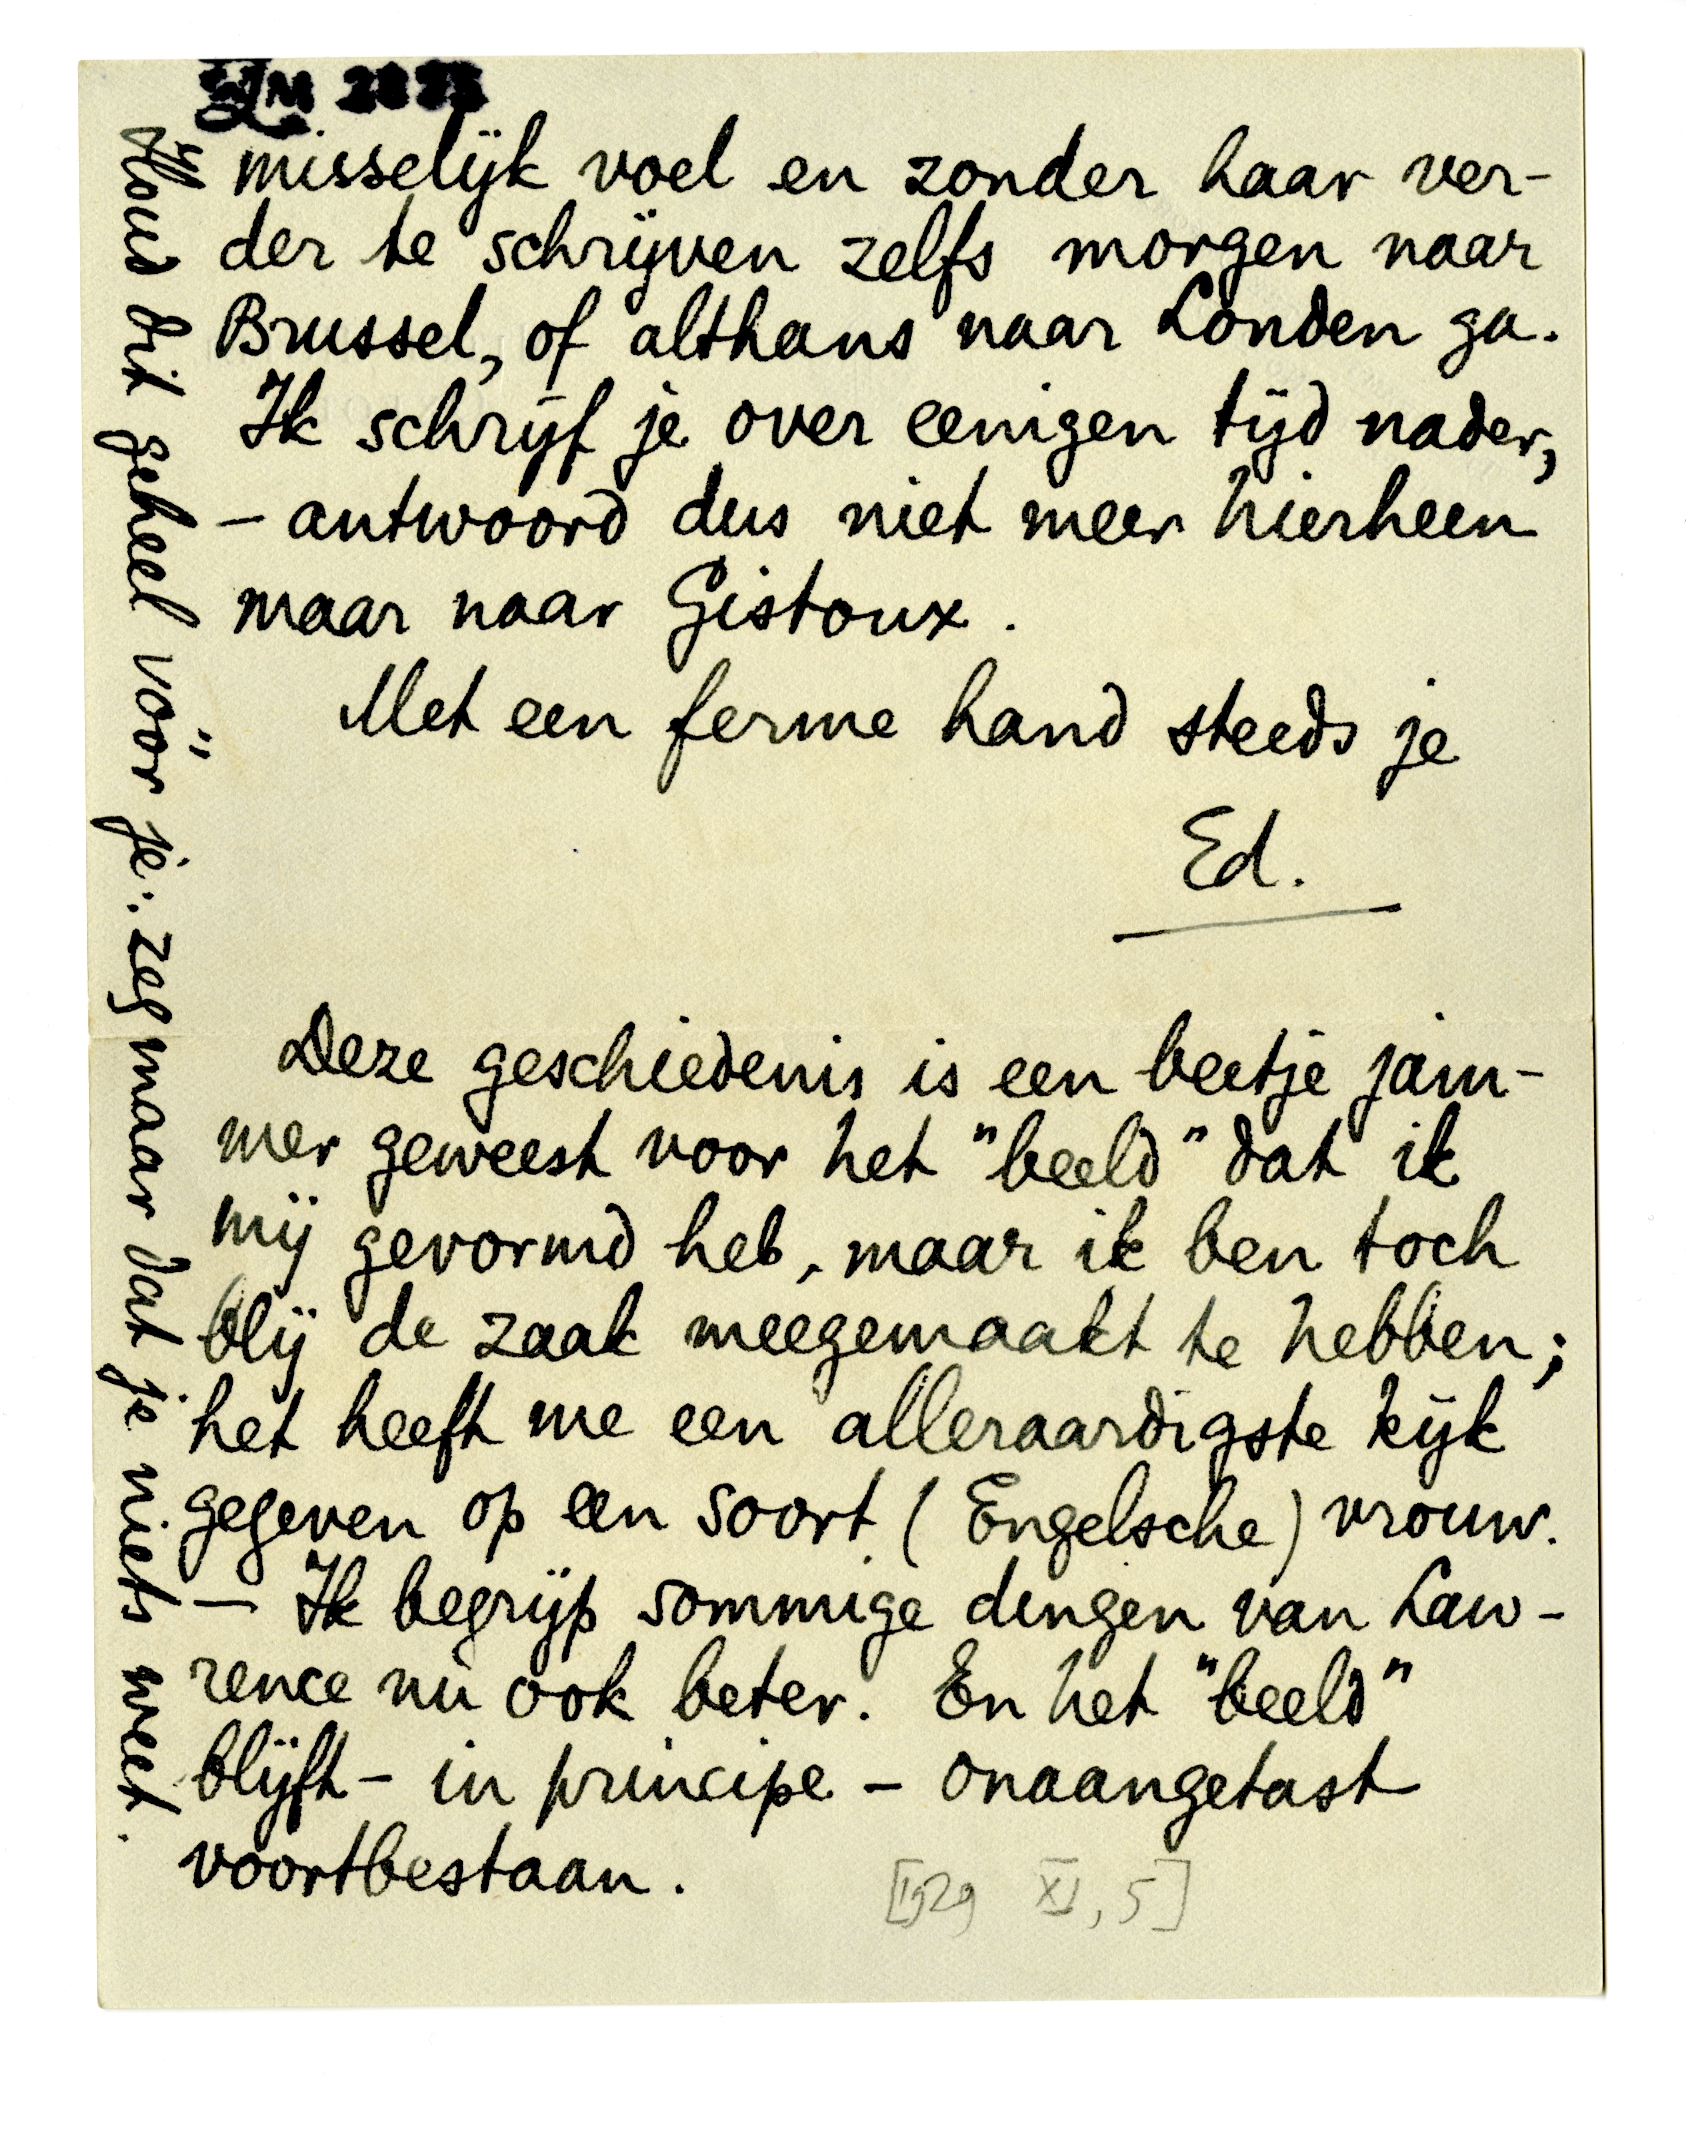 misselijk voel en zonder haar ver-
der te schrijven zelfs morgen naar
Brussel, of althans naar Londen ga.
Ik schrijf je over eenigen tijd nader,
— antwoord dus niet meer hierheen
maar naar Gistoux.
Met een ferme hand steeds je
Ed.
Deze geschiedenis is een beetje jam-
mer geweest voor het "beeld" dat ik
mij gevormd heb, maar ik ben toch
blij de zaak meegemaakt te hebben;
het heeft me een alleraardigste kijk
gegeven op een soort (Engelsche) vrouw.
— Ik begrijp sommige dingen van Law-
rence nu ook beter. En het "beeld"
blijft — in principe — onaangetast
voortbestaan.
[1929 XI, 5]
Houd dit geheel vóór je: zeg maar dat je niets weet.